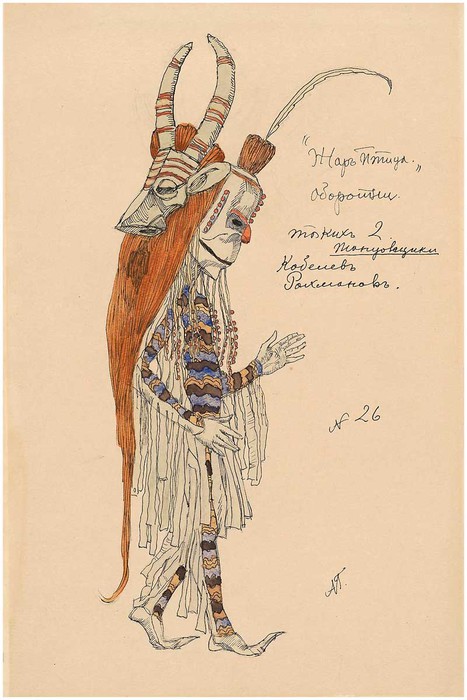 „Жаръ Птица.„
Оборотни.
такихъ 2.
танцовщики
Кобелевъ
Рахмановъ.
N 26
АГ.